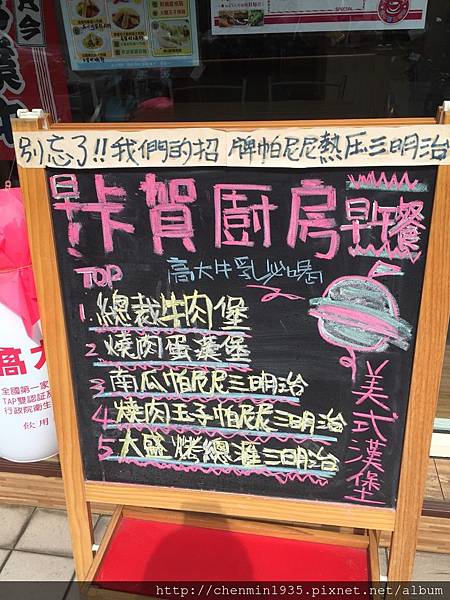 別忘了!!我們的招牌帕尼尼熱压三明治
早!卡賀廚房早午餐
TOP
高大牛乳必喝
1.總裁牛肉堡
2.燒肉蛋漢堡
3.南瓜帕尼尼三明治
4.燒肉玉子帕尼尼三明治
5.大盛烤總滙三明治
美式漢堡
全國第一家
TAP雙認証
行政院衛生
飲用
SPECIAL
http://chenmin1935.pixnet.net/album